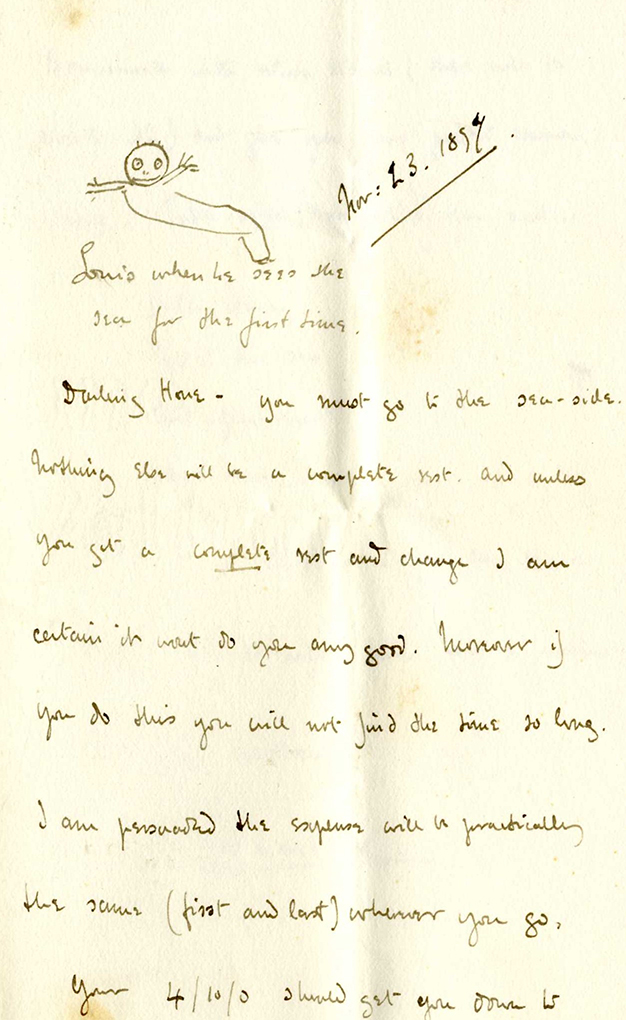 Nov: 23. 1897.
Louis when he sees the
sea for the first time.
Darling Hone - you must go to the sea-side.
Nothing else will be a complete rest. and unless
you get a complete rest and change I am
certain it wont do you any good. Moreover if
you do this you will not find the time so long.
I am persuaded the expense will be practically
the same (first and last) wherever you go.
Your 4/10/0 should get you down to